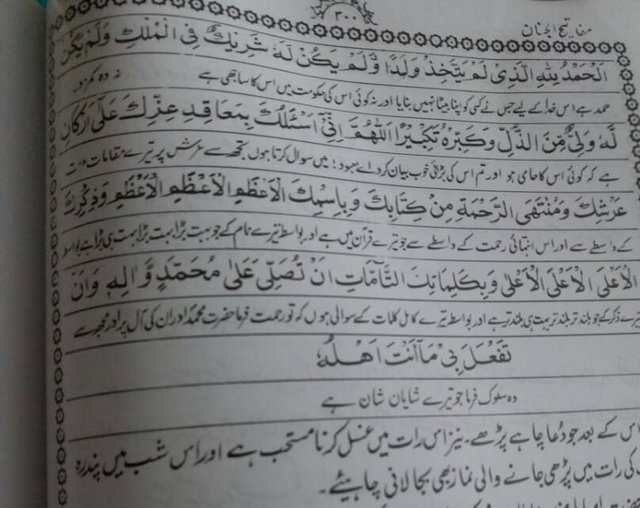 مفاتیح الجنان
۳۰۰
اَلْحَمْدُ لِلّٰهِ الَّذِیْ لَمْ یَتَّخِذْ وَلَدًا وَّلَمْ یَكُنْ لَهٗ شَرِیْكٌ فِی الْمُلْكِ وَلَمْ یَكُنْ
حمد ہے اس خدا کے لیے جس نے کسی کو اپنا بیٹا نہیں بنایا اور نہ کوئی اس کی حکومت میں اس کا ساتھی ہے
لَهٗ وَلِیٌّ مِّنَ الذُّلِّ وَكَبِّرْهُ تَكْبِیْرًا اَللّٰهُمَّ اِنِّیْ اَسْئَلُكَ بِمَعَاقِدِ عِزِّكَ عَلٰی اَرْكَانِ
ہے کہ کوئی اس کا حامی ہو اور تم اس کی بڑائی خوب بیان کرو اے معبود! میں سوال کرتا ہوں تجھ سے عرش پر تیرے مقامات
عَرْشِكَ وَمُنْتَهَی الرَّحْمَةِ مِنْ كِتَابِكَ وَبِاسْمِكَ الْاَعْظَمِ الْاَعْظَمِ الْاَعْظَمِ وَذِكْرِكَ
کے واسطے سے اور اس انتہائی رحمت کے واسطے سے جو تیرے قرآن میں ہے اور بواسطہ تیرے نام کے جو بہت بڑا بہت بڑا بہت ہی بڑا ہے بواسطہ
الْاَعْلَی الْاَعْلَی الْاَعْلٰی وَبِكَلِمَاتِكَ التَّآمَّاتِ اَنْ تُصَلِّیَ عَلٰی مُحَمَّدٍ وَّاٰلِهٖ وَاَنْ
تیرے ذکر کے جو بلند تر بلند تر بہت ہی بلند تر ہے اور بواسطہ تیرے کامل کلمات کے سوالی ہوں کہ تو رحمت فرما حضرت محمدؐ اور ان کی آل پر اور مجھ سے
تَفْعَلَ بِیْ مَآ اَنْتَ اَهْلُهٗ
وہ سلوک فرما جو تیرے شایان شان ہے
اس کے بعد جو دعا چاہے پڑھے۔ نیز اس رات میں غسل کرنا مستحب ہے اور اس شب میں پندرہ
کی رات میں پڑھی جانے والی نماز بھی بجا لانی چاہیئے۔